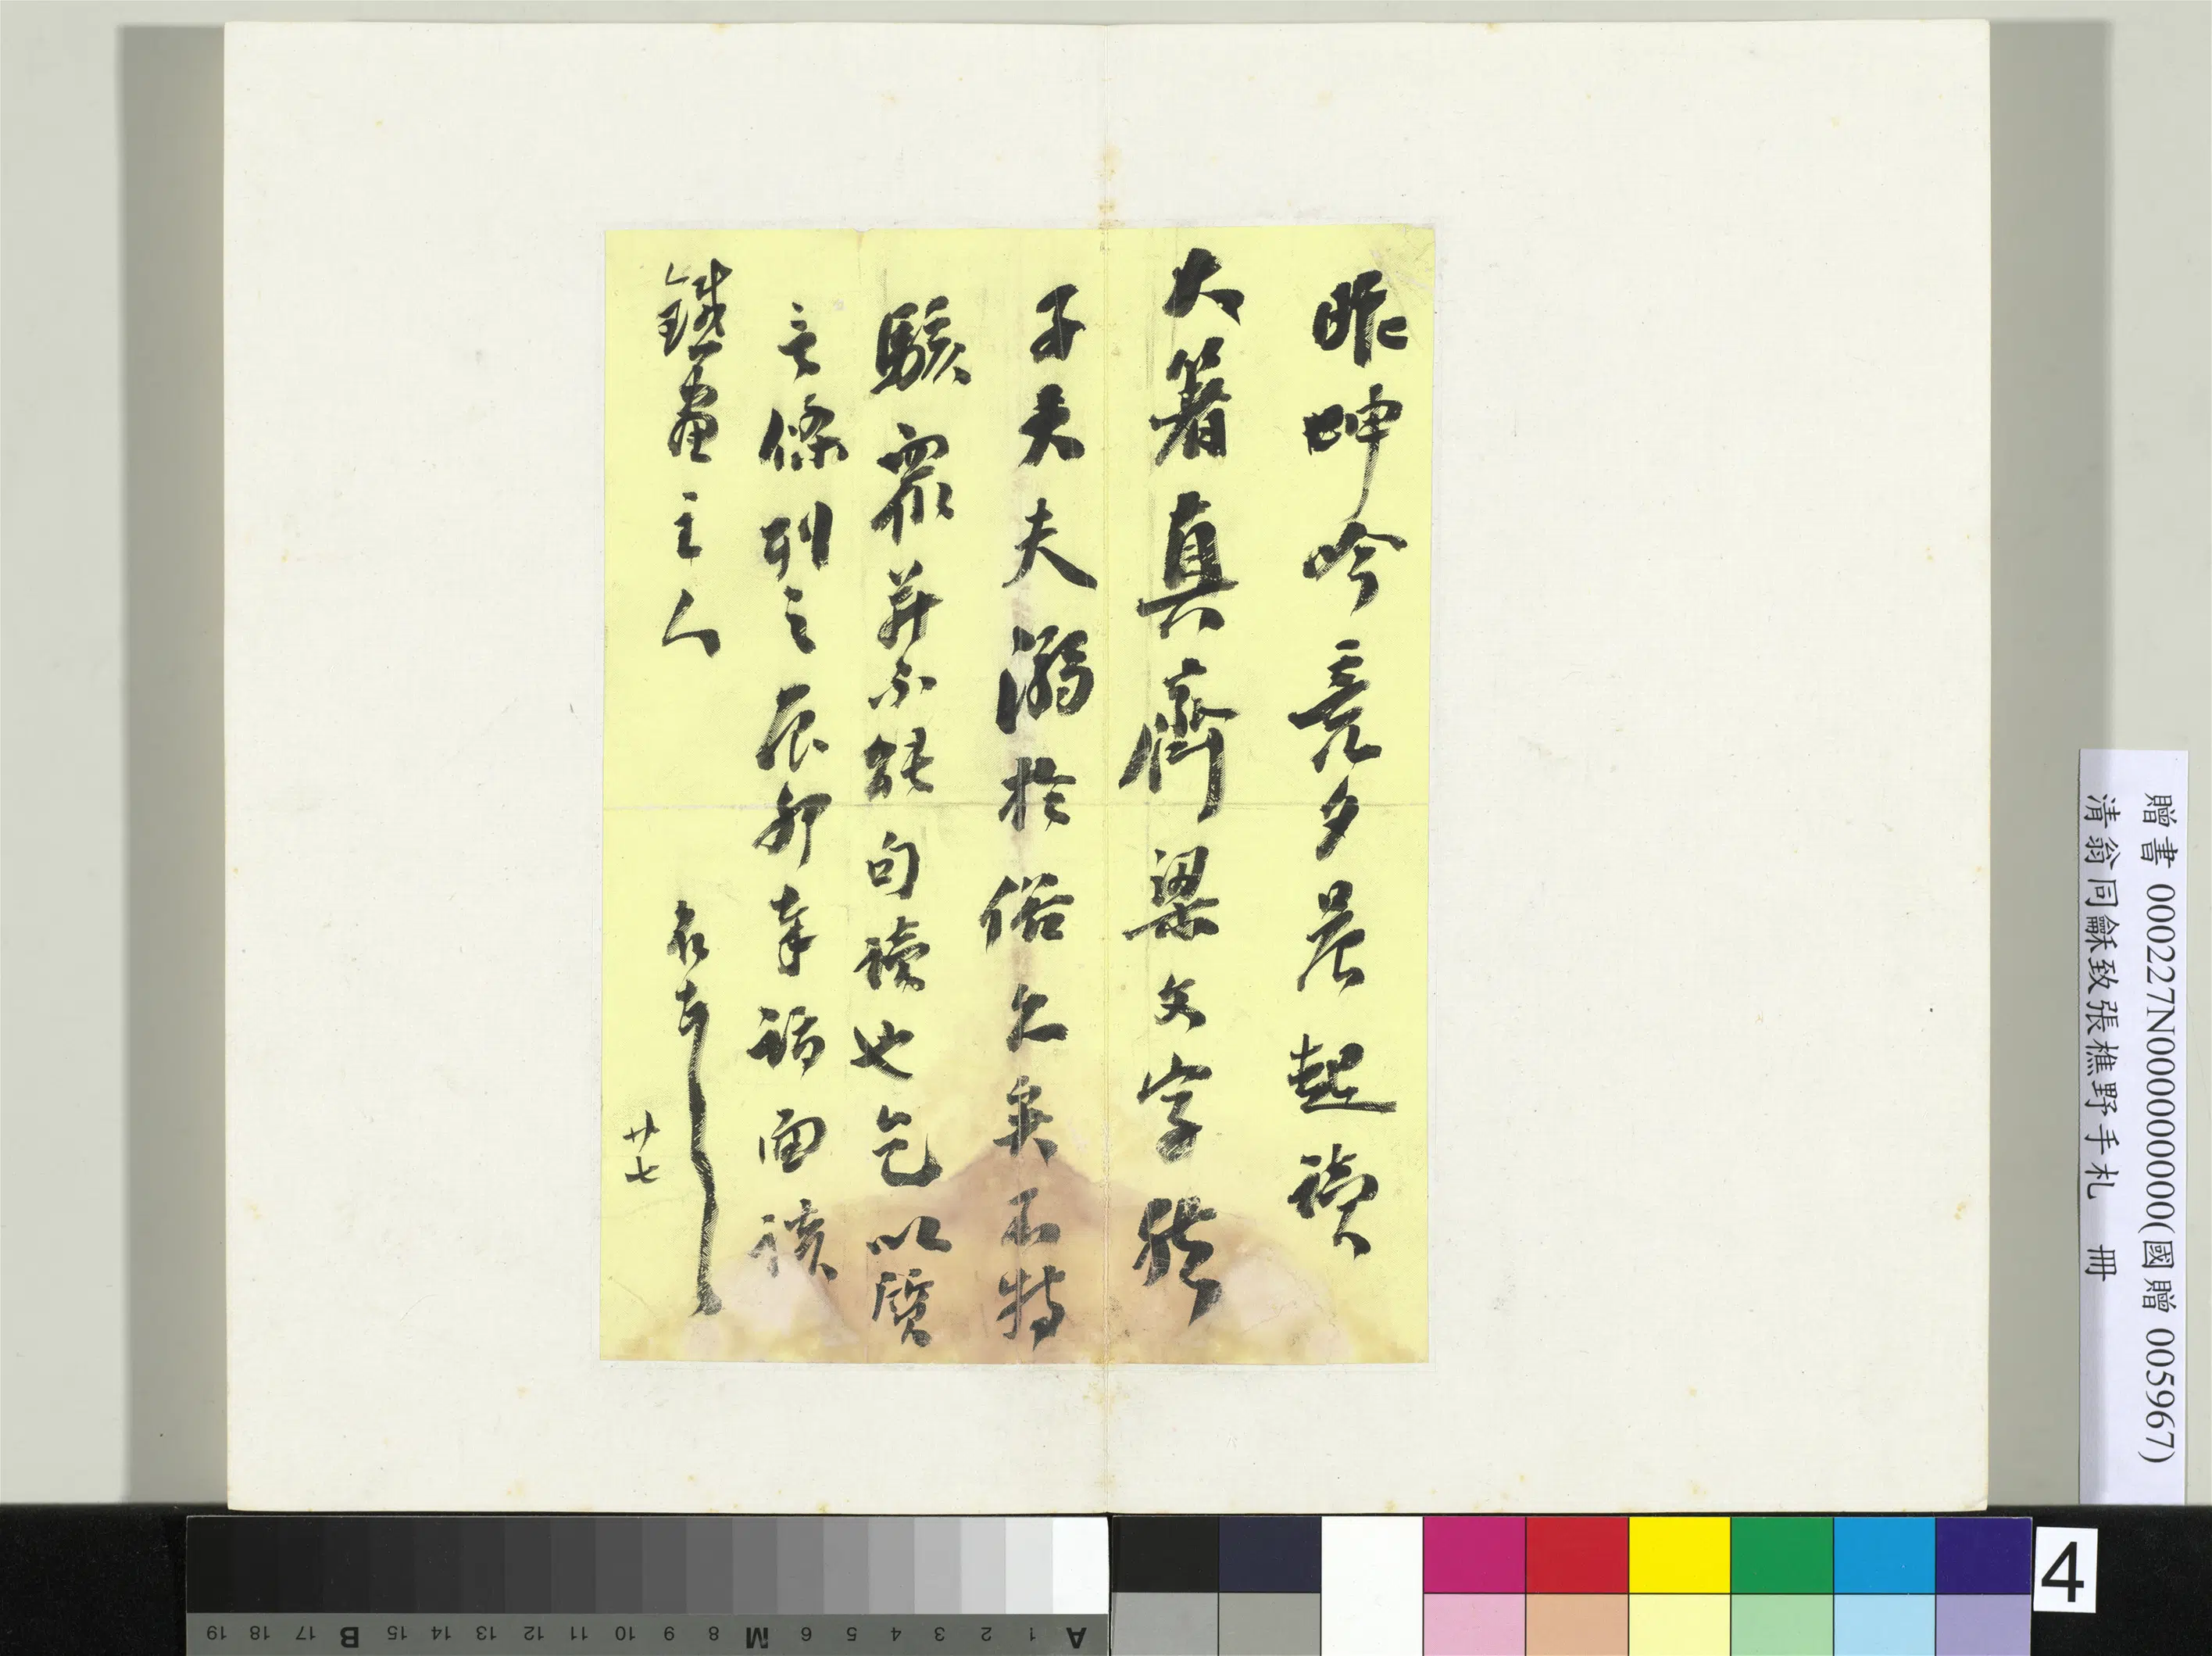 昨呻吟竟夕晨起讀
大箸真齊梁文字
夫溺於俗久矣不特
駭眾并不能句讀也乞以質
言條列之辰卯奉詣面談
鐵畫主人
廿七
贈書 000227N000000000(國贈 005967)
清翁同龢致張樵野手札 冊
A 1 2 3 4 5 6 M 8 9 10 11 12 13 14 15 B 17 18 19
4